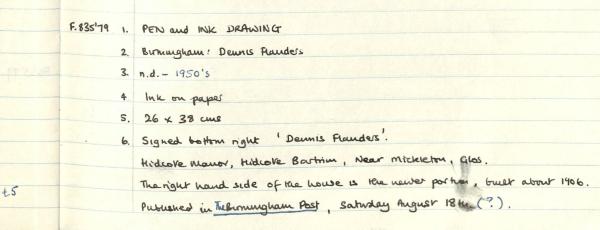 F.835'79 1. PEN and INK DRAWING
2. Birmingham: Dennis Flanders
3. n.d. - 1950's
4 Ink on paper
5. 26 x 38 cms
6. Signed bottom right 'Dennis Flanders'.
Hidcote Manor, Hidcote Bartrim, Near Mickleton, Glos.
The right hand side of the house is the newer portion, built about 1906.
t.5
Published in The Birmingham Post, Saturday August 18th (?).